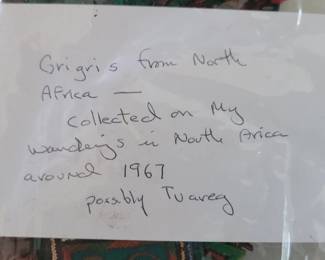 Grigris from North
Africa —
Collected on My
wanderings in North Arica
around 1967
possibly Tuareg